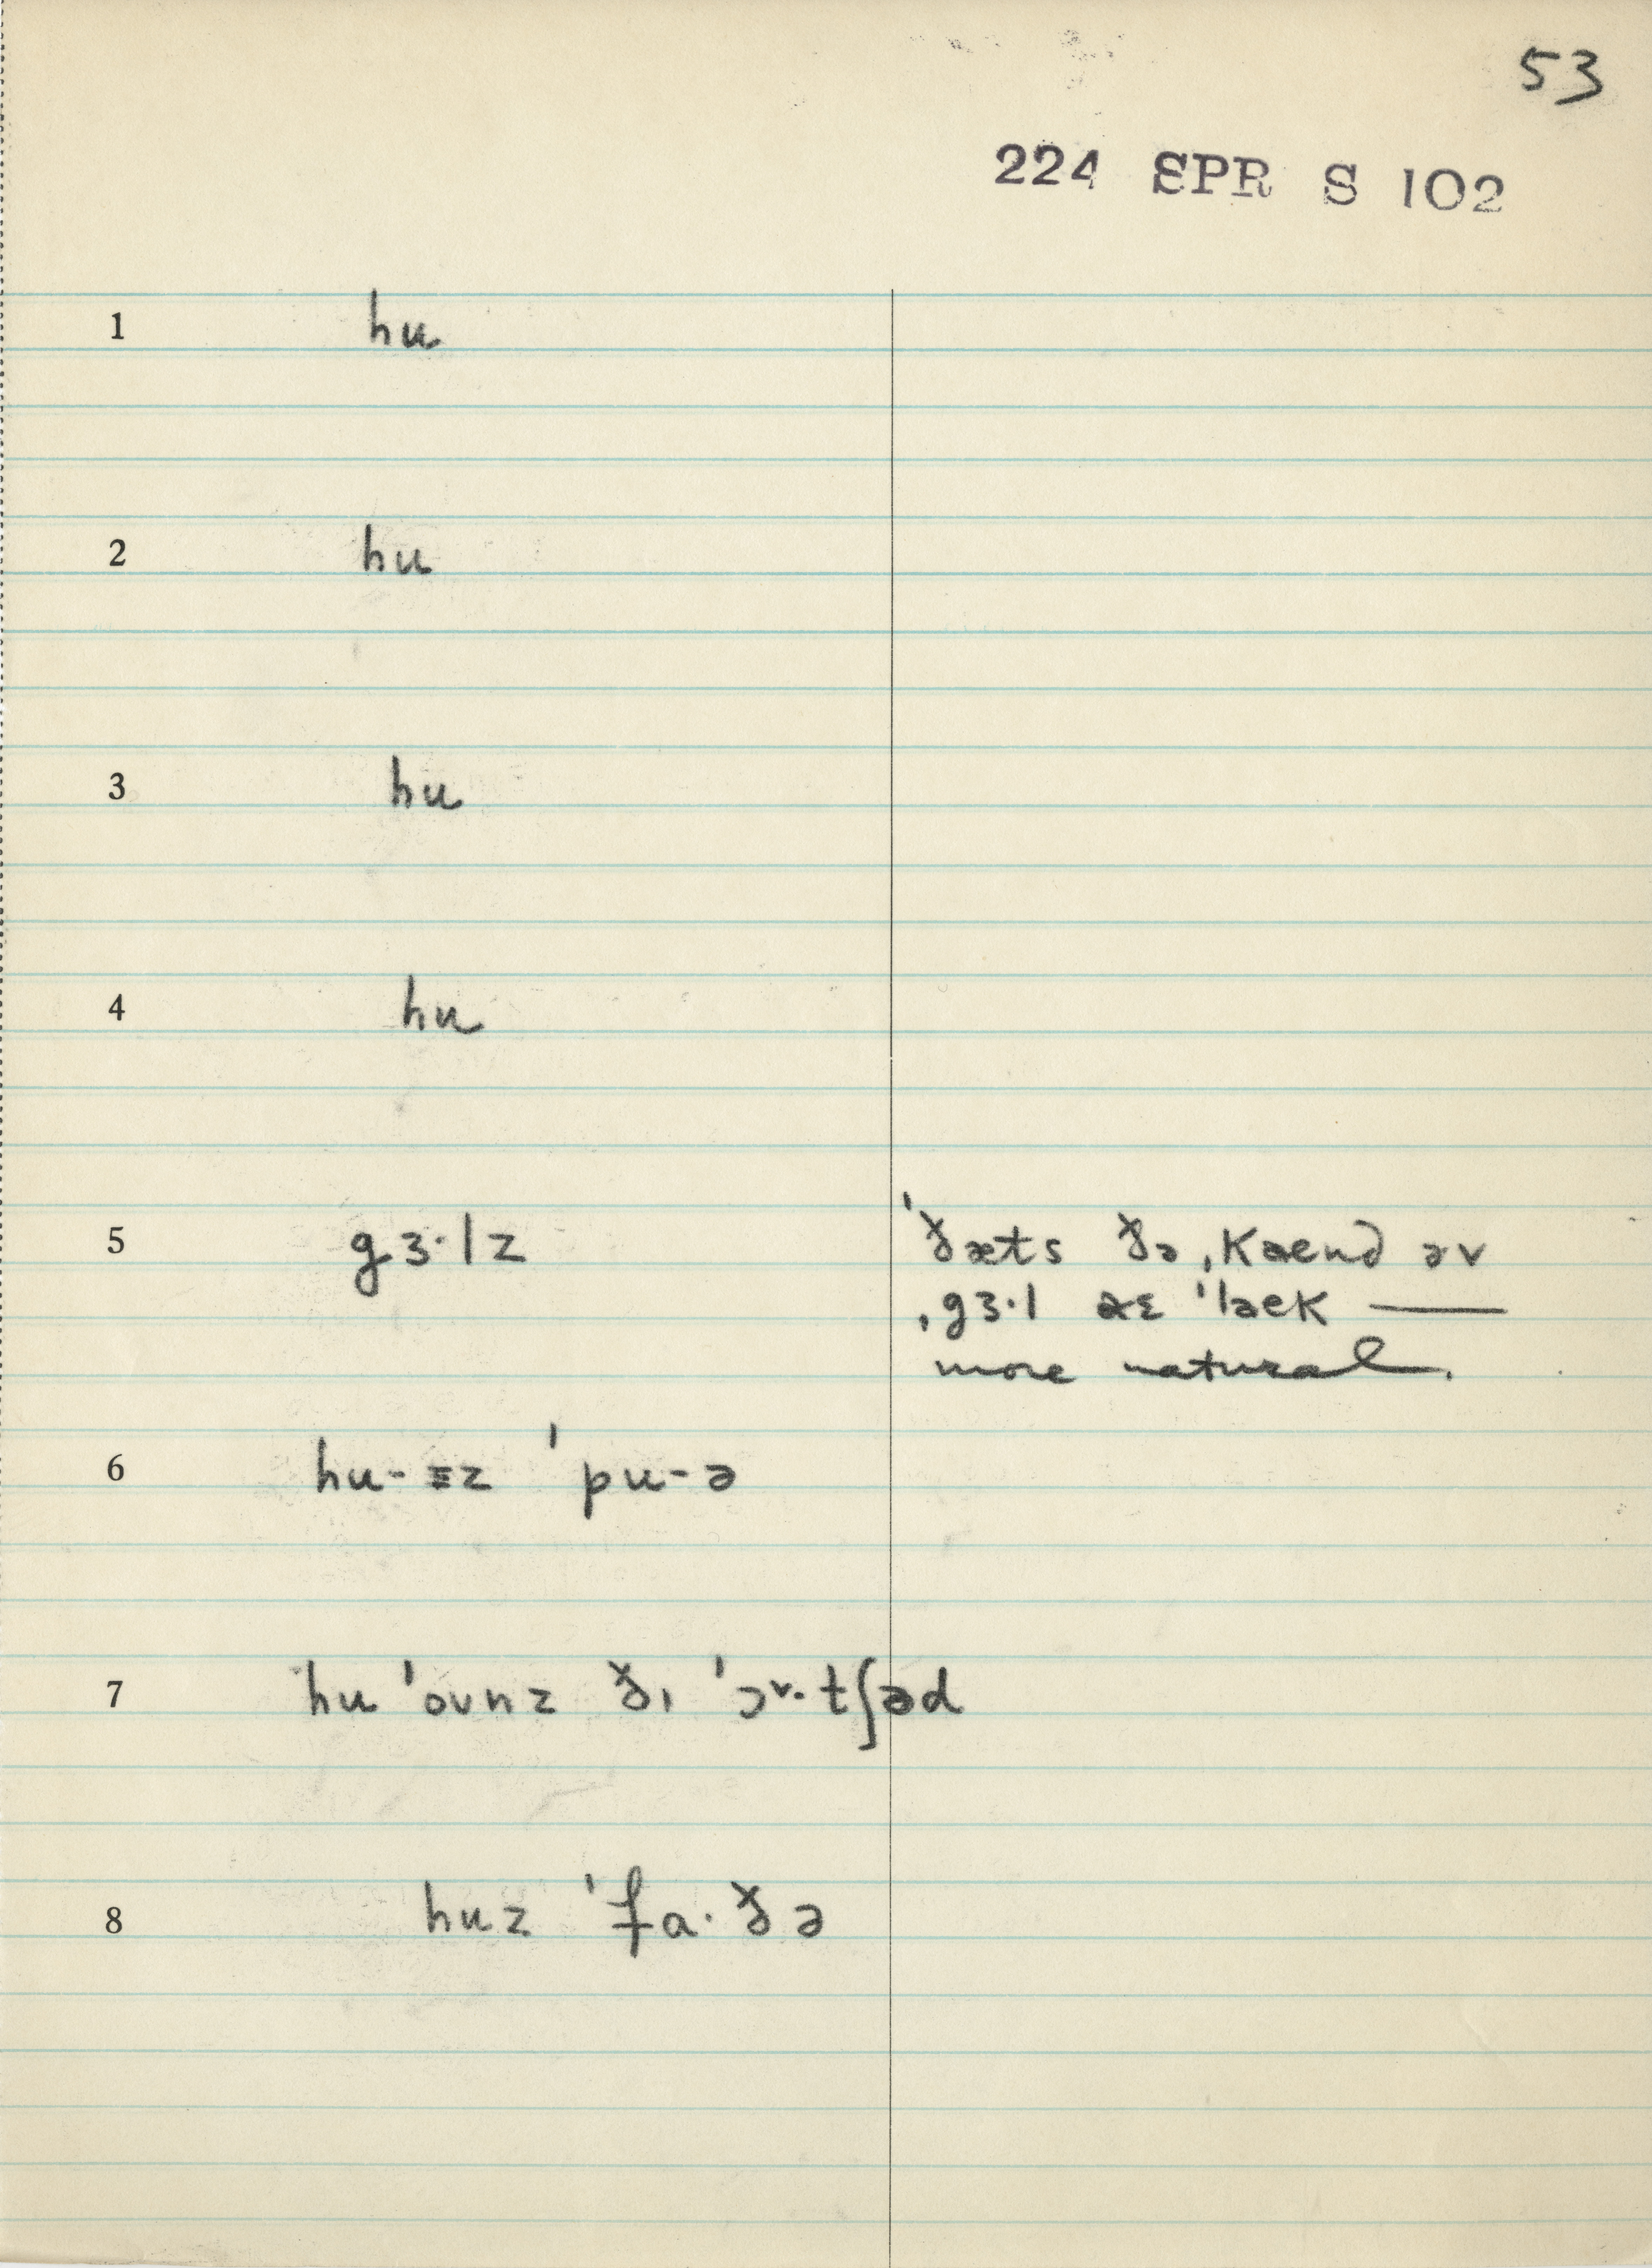 53
224 SPR S 102
1 hu
2 hu
3 hu
4 hu
5 gɜ·lz
ˈðæts ðə ˌkaend əv
ˌgɜ·l aɛ ˈlaek ——
more natural.
6 hu-ɪz ˈpu-ə
7 hu ˈoʊnz ðɪ ˈɔ˅·tʃəd
8 huz ˈfa·ðə